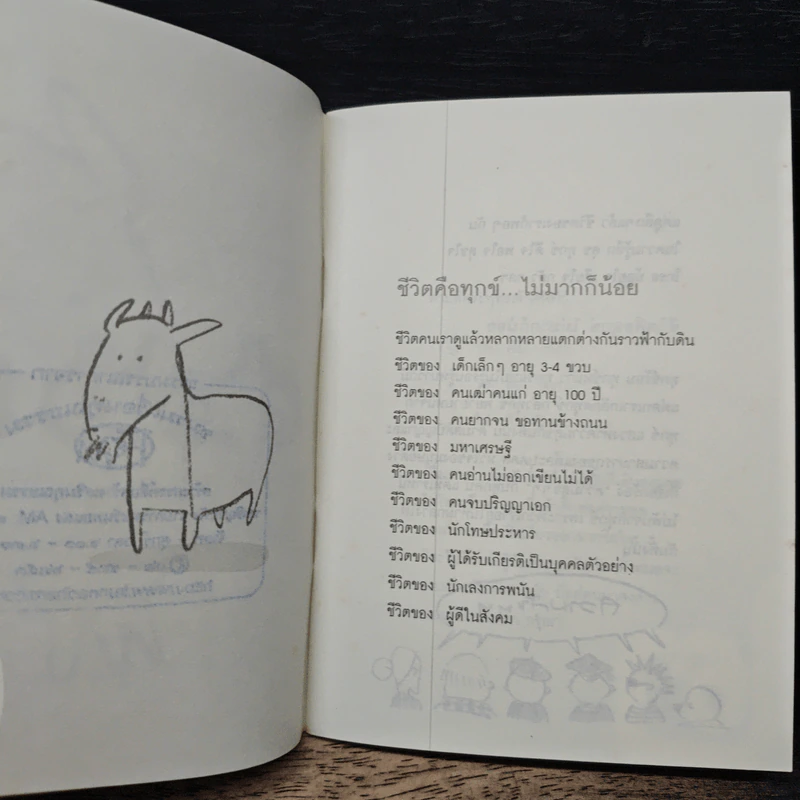 ชีวิตคือทุกข์...ไม่มากก็น้อย
ชีวิตคนเราดูแล้วหลากหลายแตกต่างกันราวฟ้ากับดิน
ชีวิตของ เด็กเล็กๆ อายุ 3-4 ขวบ
ชีวิตของ คนเฒ่าคนแก่ อายุ 100 ปี
ชีวิตของ คนยากจน ขอทานข้างถนน
ชีวิตของ มหาเศรษฐี
ชีวิตของ คนอ่านไม่ออกเขียนไม่ได้
ชีวิตของ คนจบปริญญาเอก
ชีวิตของ นักโทษประหาร
ชีวิตของ ผู้ได้รับเกียรติเป็นบุคคลตัวอย่าง
ชีวิตของ นักเลงการพนัน
ชีวิตของ ผู้ดีในสังคม